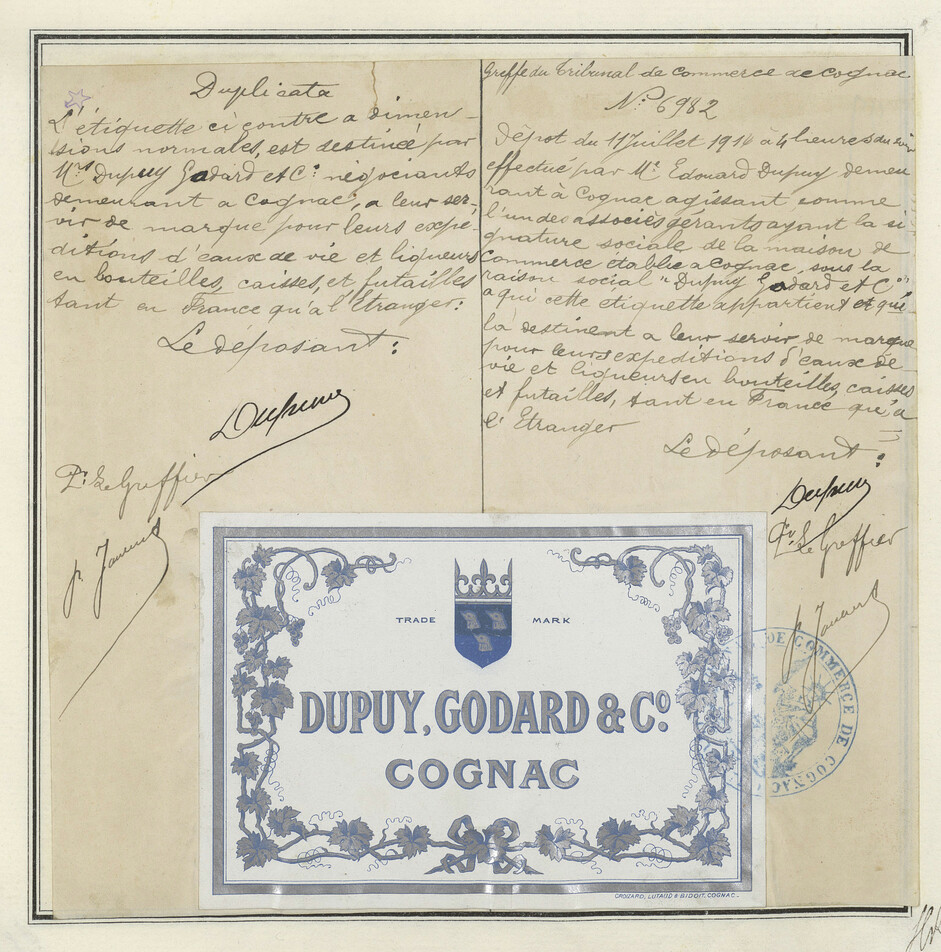 Duplicata
L'étiquette ci contre a dimen-
sions normales, est destinée par
Mrs Dupuy Godard et Cie négociants
demeurant a Cognac, a leur ser-
vir de marque pour leurs expé-
ditions d'eaux de vie et liqueurs
en bouteilles, caisses, et futailles
tant en France qu'a l'Etranger.
Le déposant:
Dupuy
Pr Le Greffier
Greffe du Tribunal de Commerce de Cognac
No 6982
Dépot du 11 Juillet 1910 à 4 heures du soir
effectué par Mr Edouard Dupuy demeu
rant à Cognac agissant comme
l'un des associés gérants ayant la si-
gnature sociale de la maison de
Commerce établie a Cognac, sous la
raison social "Dupuy Godard et Co"
a qui cette etiquette appartient et qui
la destinent a leur servir de marque
pour leurs expeditions d'eaux de
vie et liqueurs en bouteilles, caisses
et futailles, tant en France qu'a
l'Etranger
Le déposant:
Dupuy
Pr Le Greffier
TRADE MARK
DUPUY, GODARD & Co.
COGNAC
CROIZARD, LUTAUD & BIDOIT. COGNAC.
DE COMMERCE DE COGNAC